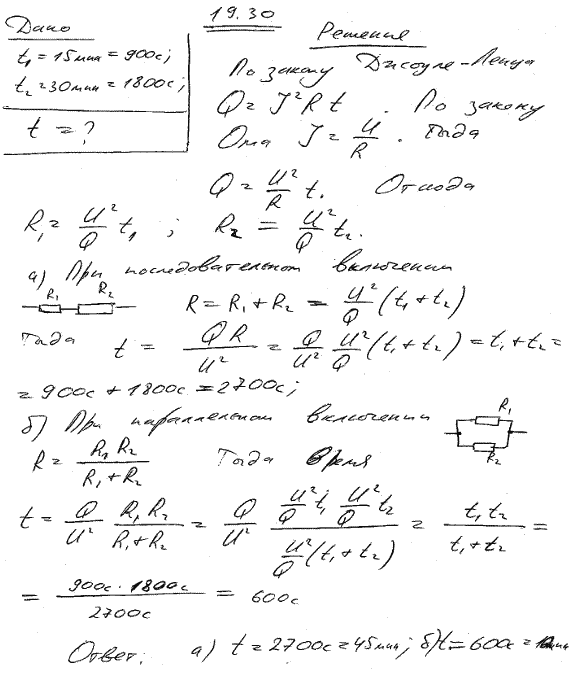 19.30
Дано
t₁ = 15мин = 900с;
t₂ = 30мин = 1800с;
t = ?
Решение
По закону Джоуля-Ленца
Q = J²Rt . По закону
Ома J = U/R . Тогда
Q = U²/R t. Отсюда
R₁ = U²/Q t₁ ; R₂ = U²/Q t₂.
а) При последовательном включении
R₁ R₂
R = R₁ + R₂ = U²/Q (t₁ + t₂)
Тогда t = QR/U² = Q/U² U²/Q (t₁ + t₂) = t₁ + t₂ =
= 900с + 1800с = 2700с;
б) При параллельном включении
R₁
R₂
R = R₁R₂/(R₁+R₂) Тогда время
t = Q/U² R₁R₂/(R₁+R₂) = Q/U² (U²/Q t₁ U²/Q t₂)/(U²/Q (t₁+t₂)) = t₁t₂/(t₁+t₂) =
= 900с · 1800с/2700с = 600с
Ответ: а) t = 2700с = 45мин; б) t = 600с = 10мин